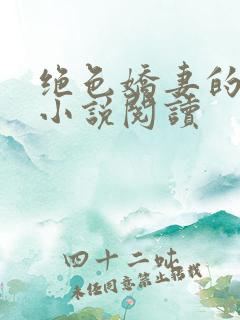 绝色嬌妻的
小説閱讀
四十二吠
未经同意禁止转载